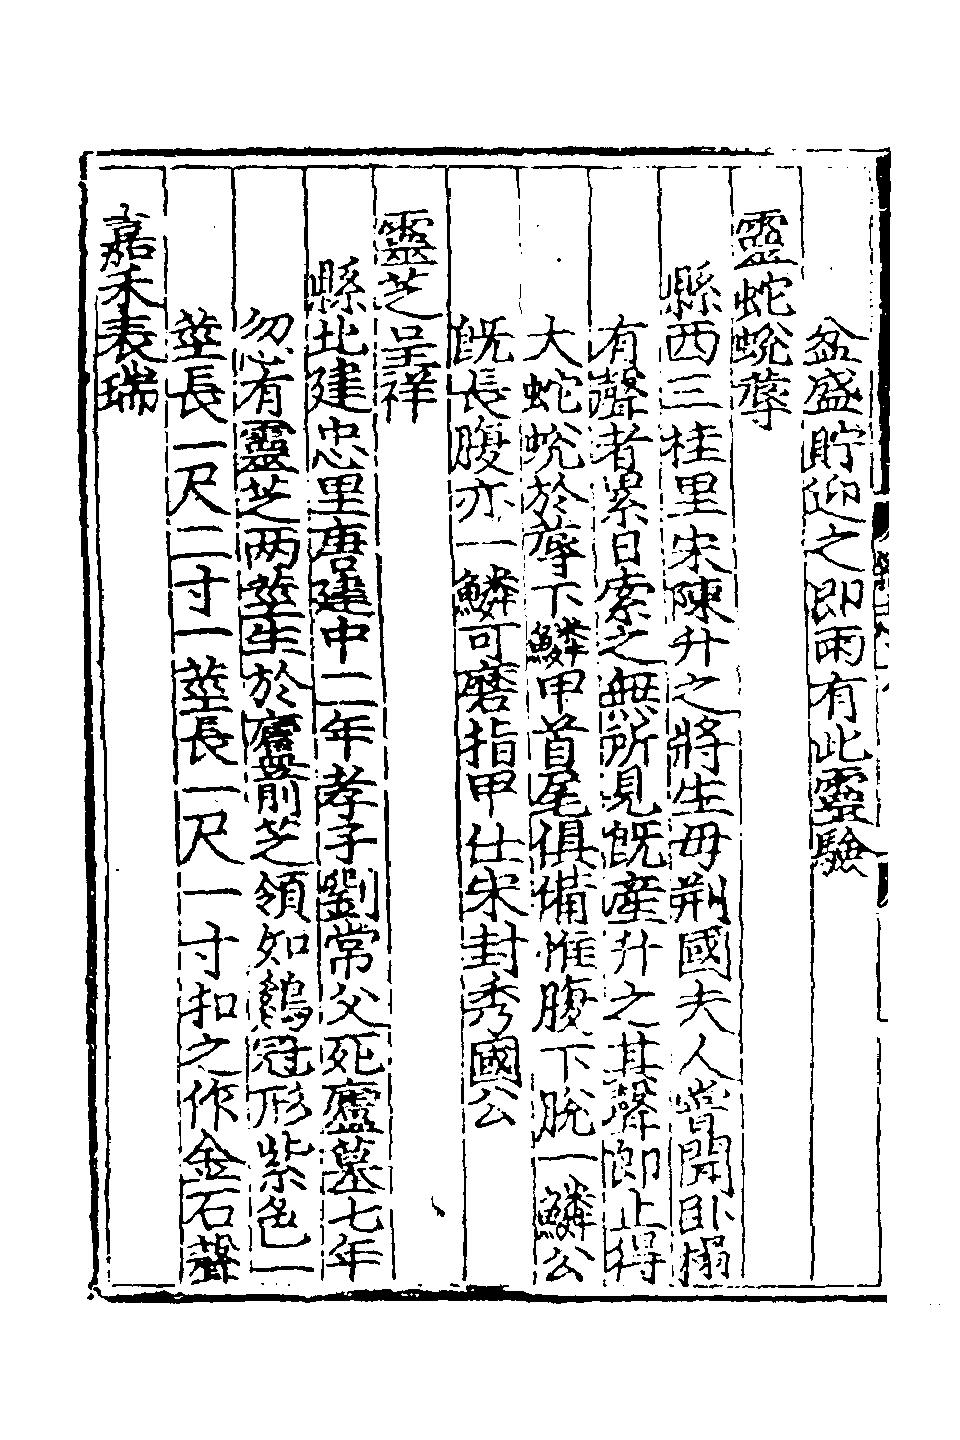 盆盛貯迎之即雨有此靈驗
靈蛇蛻蓐
縣西三桂里宋陳升之將生毋荆國夫人嘗聞卧榻
有聲者累日索之無所見旣產升之其聲即止得
大蛇蛻於蓐下鱗甲首尾俱備惟腹下脫一鱗公
旣長腹亦一鱗可磨指甲仕宋封秀國公
靈芝呈祥
縣北建忠里唐建中二年孝子劉常父死廬墓七年
忽有靈芝两莖生於廬前芝領如鷄冠形紫色一
莖長一尺二寸一莖長一尺一寸扣之作金石聲
嘉禾表瑞